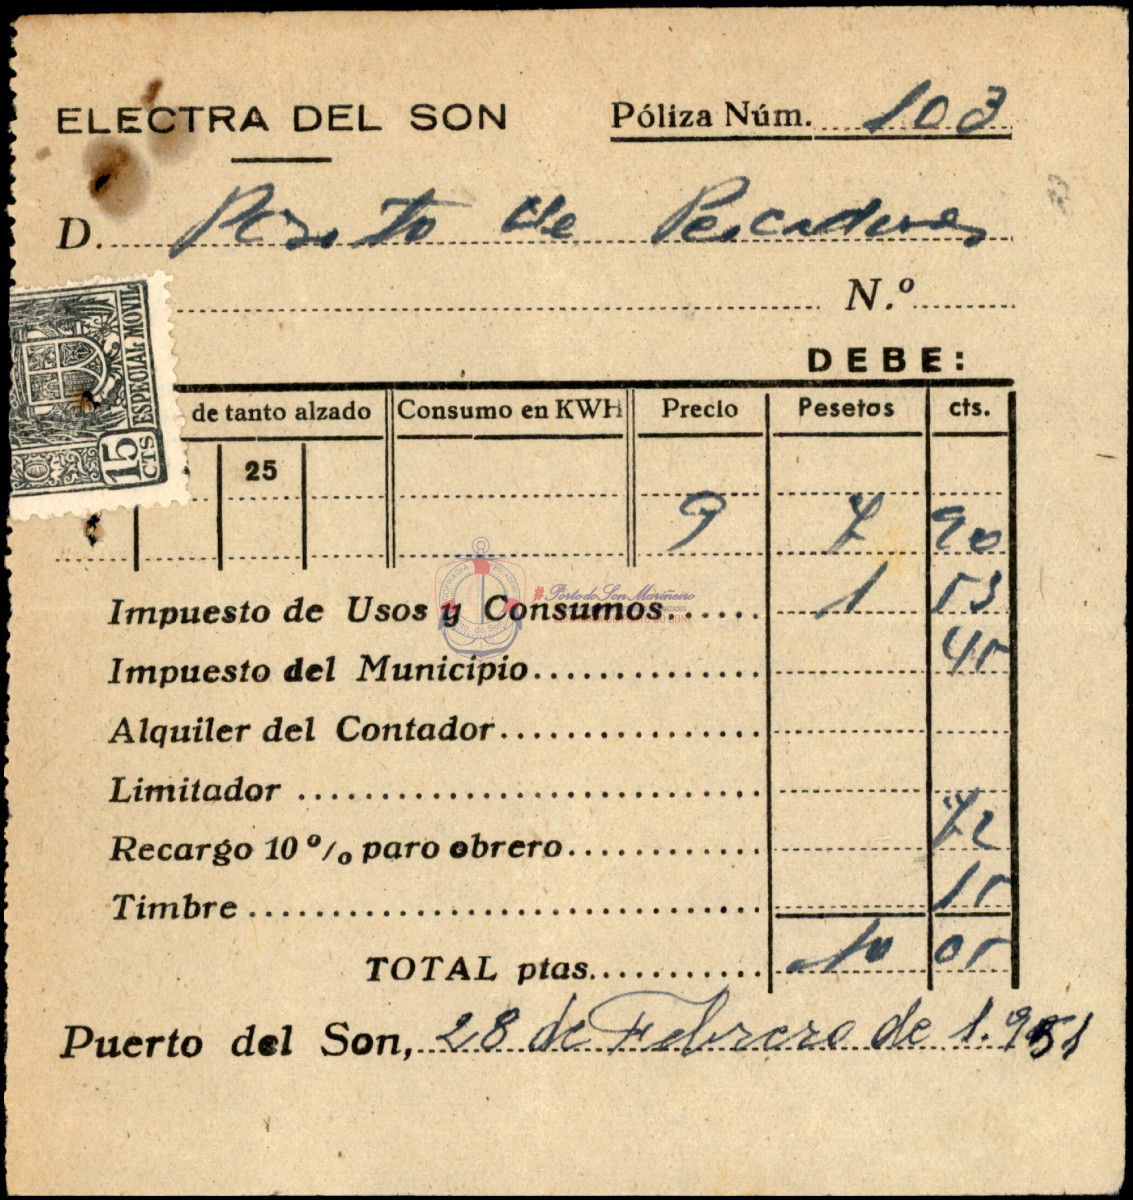 ELECTRA DEL SON
Póliza Núm. 103
D. Pósito de Pescadores
N.º
ESPECIAL MOVIL
15 CTS
DEBE:
de tanto alzado Consumo en KWH Precio Pesetas cts.
25
9 7 90
Impuesto de Usos y Consumos 1 53
Impuesto del Municipio 45
Alquiler del Contador
Limitador
Recargo 10 % paro obrero 72
Timbre 15
TOTAL ptas. 10 05
Puerto del Son, 28 de Febrero de 1.951
#Porto do Son Mariñeiro